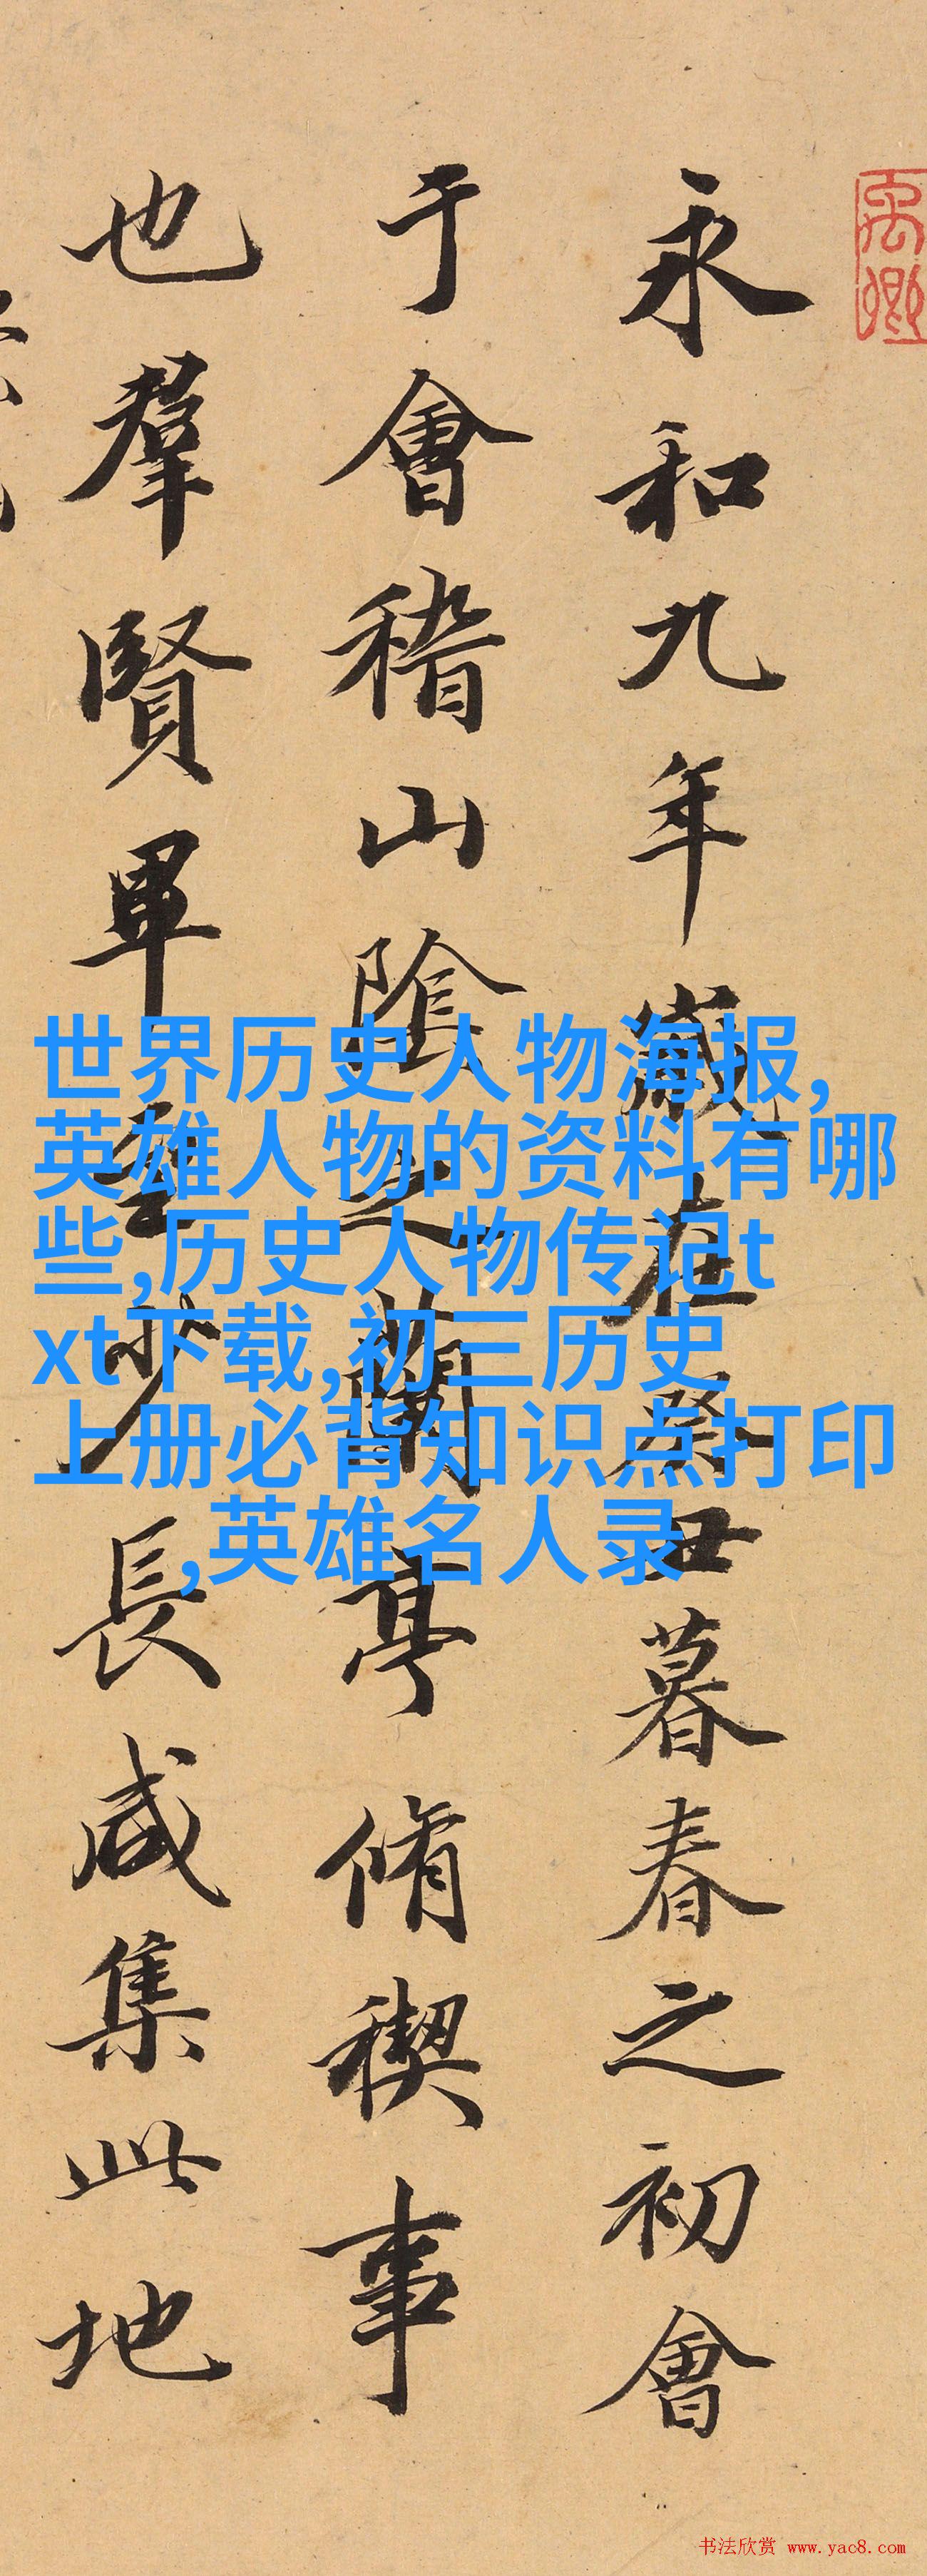 禹卿
永和九年歲在癸丑暮春之初會
于會稽山隂之蘭亭脩稧事
也羣賢畢至少長咸集此地
世界历史人物海报,
英雄人物的资料有哪
些,历史人物传记t
xt下载,初三历史
上册必背知识点打印
,英雄名人录
书法欣赏 www.yac8.com